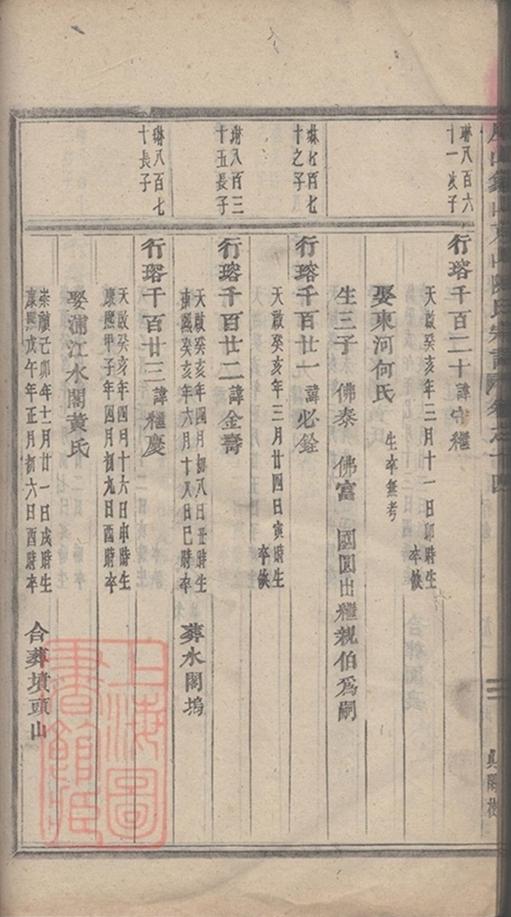 琳八百六
十一次子
行瑢千百二十諱守繼
天啟癸亥年三月十一日卯時生
卒缺
娶東河何氏
生卒無考
生三子 佛泰 佛富 國圓出繼親伯為嗣
琳七百七
十之子
行瑢千百廿一諱必銓
天啟癸亥年三月廿四日寅時生
卒缺
琳八百三
十五長子
行瑢千百廿二諱金壽
天啟癸亥年四月初八日丑時生
康熙癸亥年六月十八日巳時卒
葬水閣塢
琳八百七
十長子
行瑢千百廿三諱繼慶
天啟癸亥年四月十六日申時生
康熙甲子年四月初九日酉時卒
娶浦江水閣黃氏
崇禎己卯年十二月廿一日戌時生
康熙戊午年正月初六日酉時卒
合葬墳頭山
上海圖
書館藏